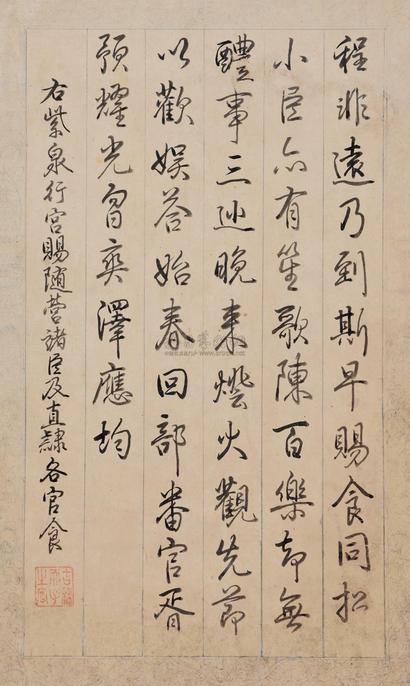 程非遠乃到斯早賜食同招
小臣亦有笙歌陳百樂却無
醴事三巡晚來燈火觀先節
以歡娛答始春回部番官胥
預耀光奕澤應均
右紫泉行宮賜隨營諸臣及直隸各官食
古稀天子之寶